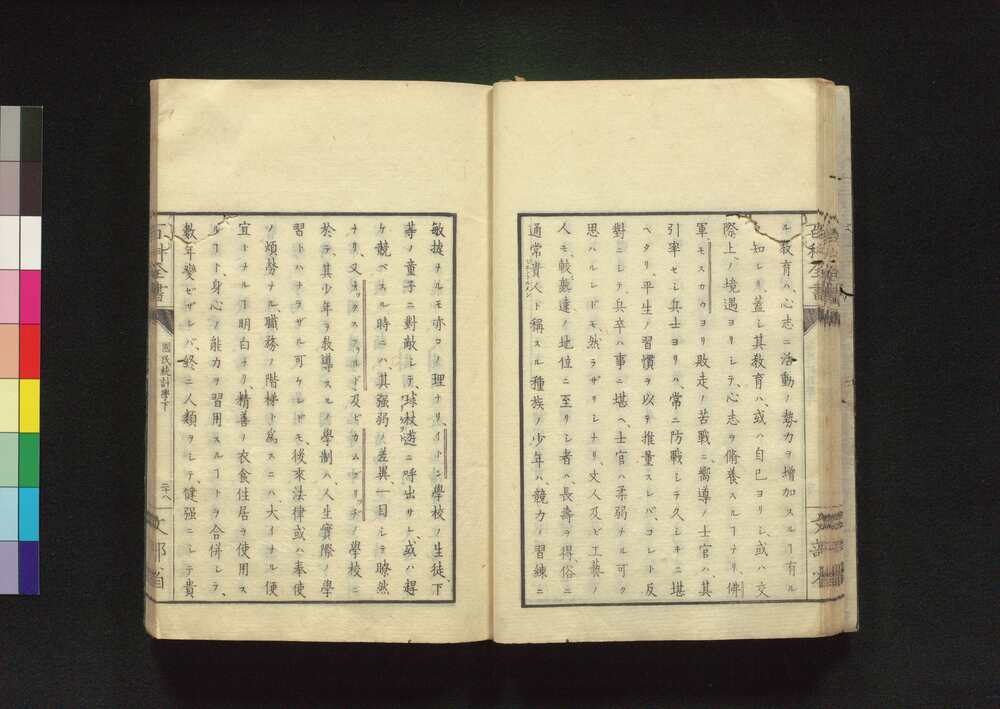 ル教育ハ、心志ニ活動ノ勢力ヲ增加スルヿ有ル
ヲ知レリ、蓋シ其教育ハ、或ハ自己ヨリシ、或ハ交
際上ノ境遇ヨリシテ、心志ヲ脩養スルヿナリ、佛
軍モスカウヨリ敗走ノ苦戰ニ嚮導ノ士官ハ、其
引率セシ兵士ヨリハ、常ニ防戰シテ久シキニ堪
ヘタリ、平生ノ習慣ヲ以テ推量スレバ、コレト反
對ニシテ、兵卒ハ事ニ堪ヘ、士官ハ柔弱ナル可ク
思ハルレドモ、然ラザリシナリ、文人及ビ工藝ノ
人モ、較著達ノ地位ニ至リシ者ハ、長壽ヲ得、俗ニ
通常貴人ト稱スル種族ノ少年ハ、競力ノ習練ニ
百科全書
文部省
敏捷ナルモ亦コノ理ナリ、イトン學校ノ生徒、下
等ノ童子ニ對敵シテ、球杖遊ニ呼出サレ、或ハ趕
ケ競ベスル時ニハ、其强弱ノ差異一目シテ瞭然
ナリ、又オックスフォルド、及ビカムブリッヂノ學校ニ
於テ、其少年ヲ教導スルノ學制ハ、人生實際ノ學
習トハナラザル可ケレドモ、後來法律或ハ奉使
ノ煩勞ナル職務ノ階梯ト爲スニハ、大イナル便
宜トナルヿ明白ナリ、精善ノ衣食住居ヲ使用ス
ルヿト、身心ノ能力ヲ習用スルヿトヲ合併シテ、
數年變ゼザレバ、終ニ人類ヲシテ、健强ニシテ貴
百科全書
國民統計學下
二十八
文部省